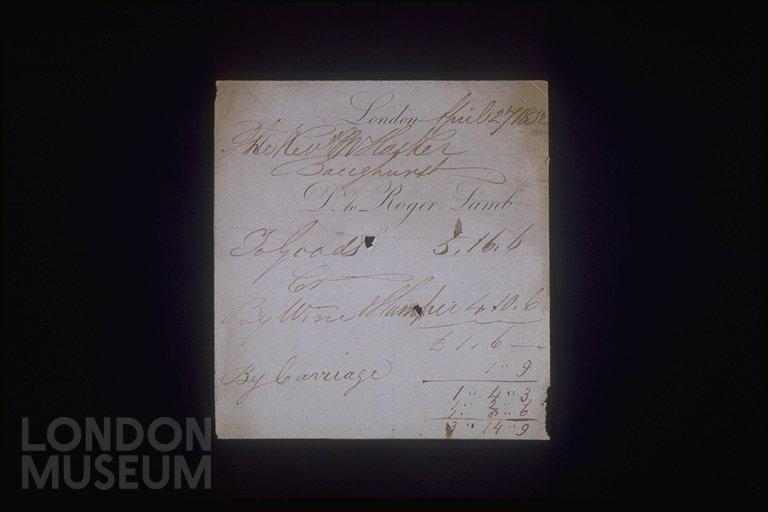 London April 27 1852
The Rev
Baughurst
Dr. to Roger Lamb.
To Goods 5,,16,,6
Cr
By Wine & Hamper 4,,10,,6
£1,,6,,—
By Carriage 1,,9
1,,4,,3
6
3,,14,,9
LONDON
MUSEUM